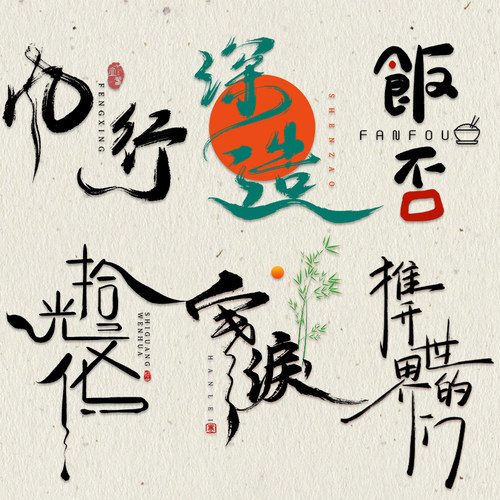 风行
FENGXING
深造
SHENZAO
飯否
FANFOU
拾光文化
SHIGUANG
WENHUA
寒淚
HANLEI
推开世界的门